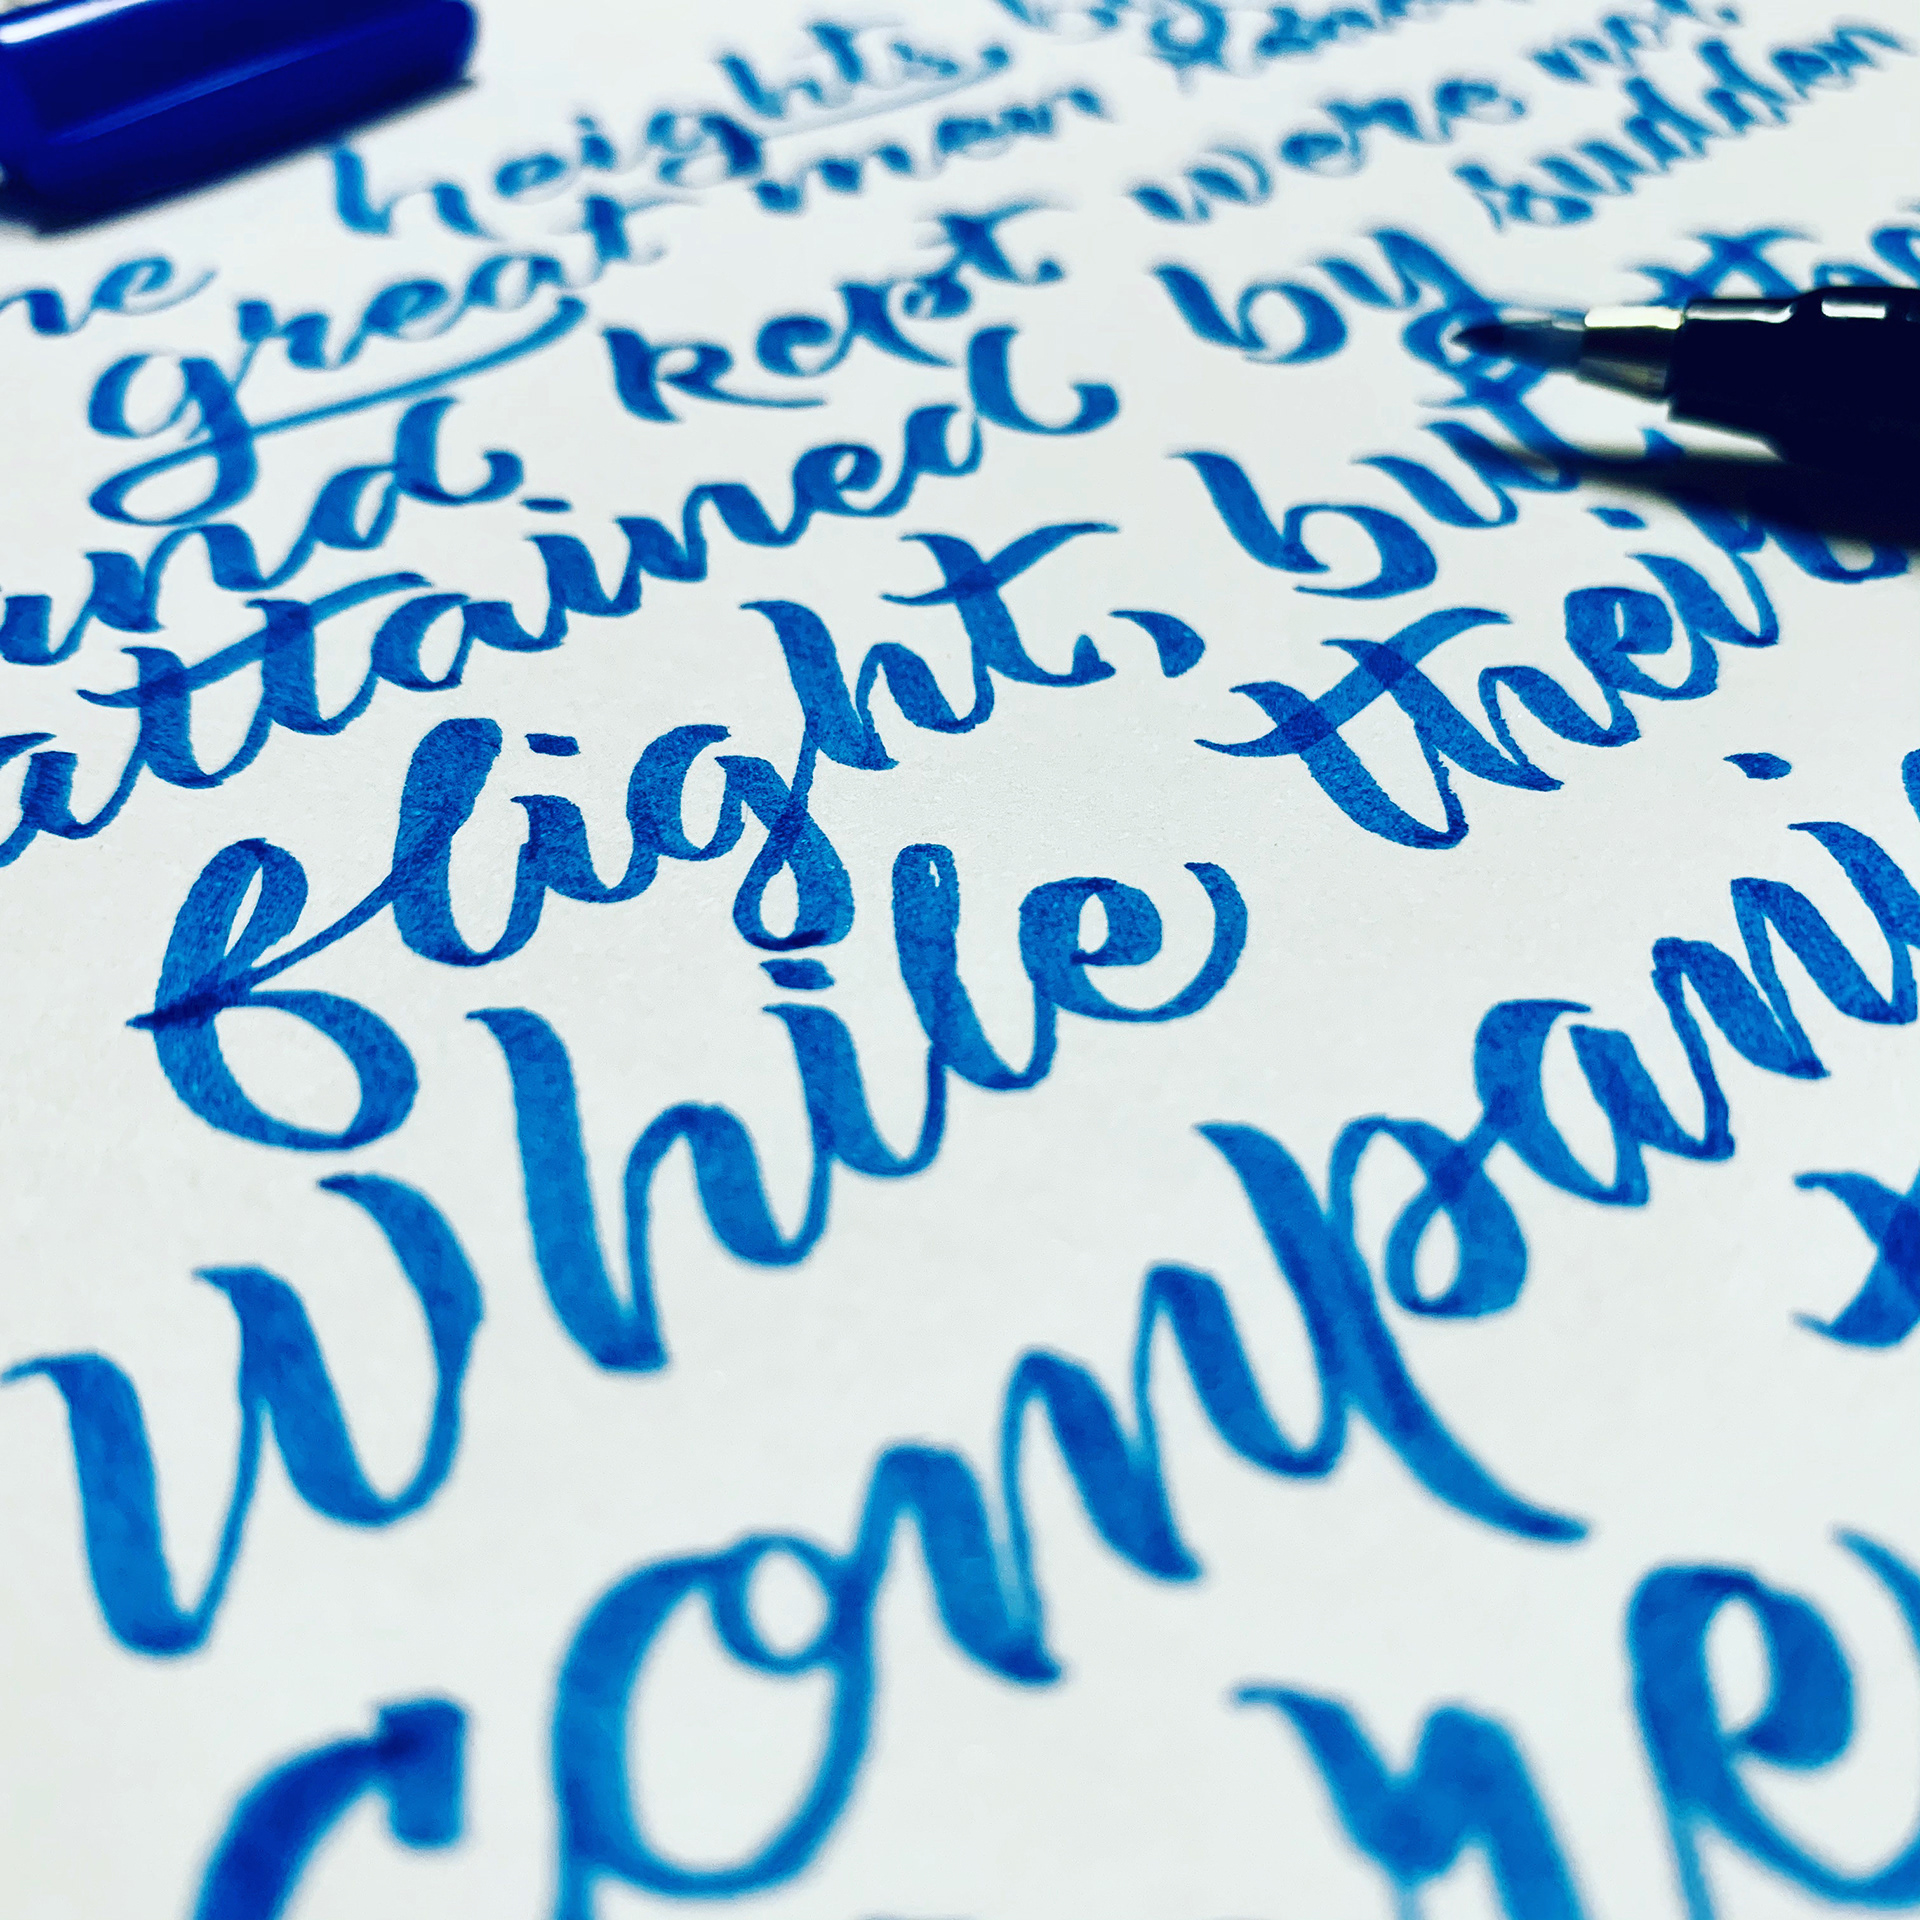 he heights, by
great men
and kept were not
attained by sudden
flight, but the
while their
compani
re